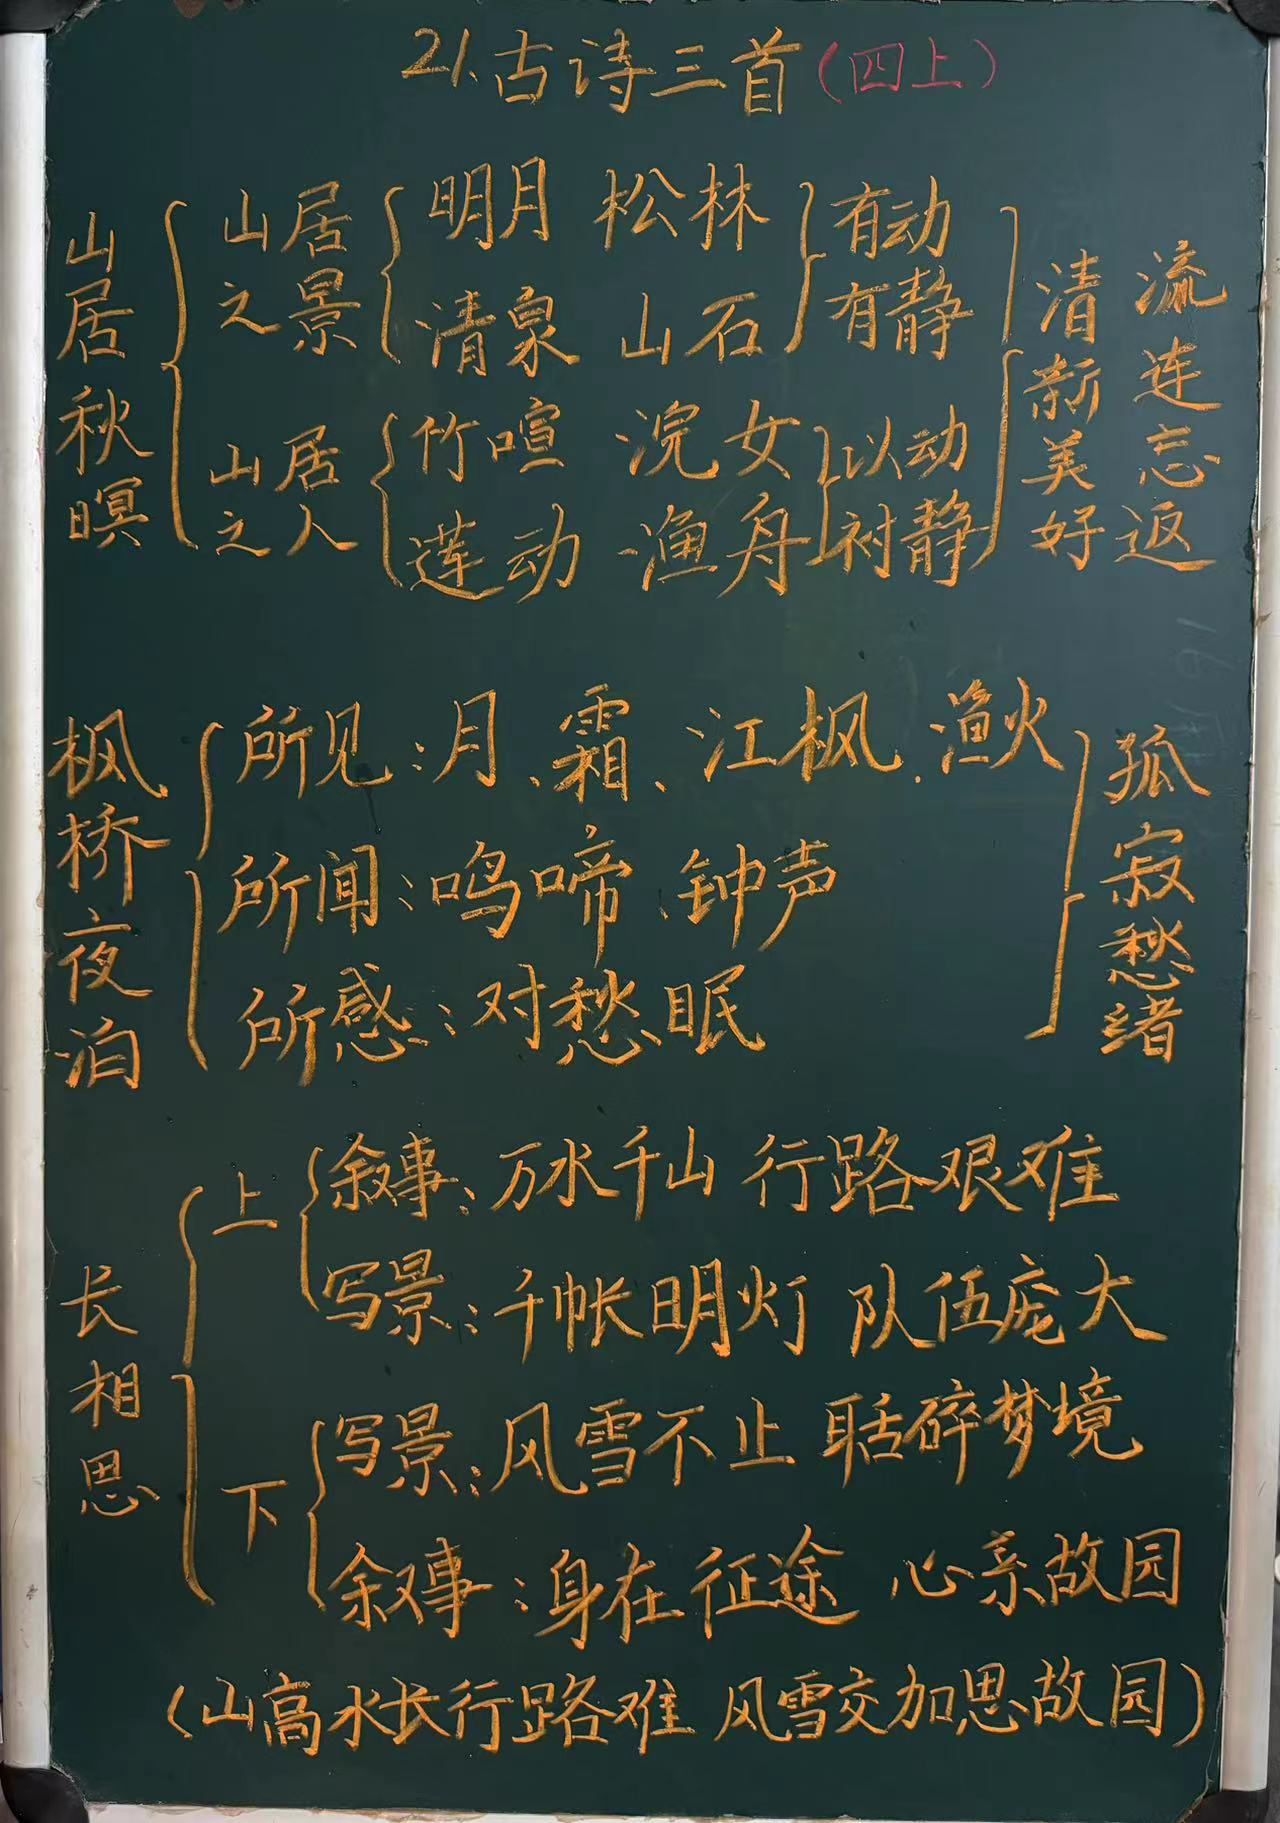 21.古诗三首(四上)
山居秋暝
山居之景
明月 松林
清泉 山石
有动有静
山居之人
竹喧 浣女
莲动 渔舟
以动衬静
清新美好
流连忘返
枫桥夜泊
所见:月、霜、江枫、渔火
所闻:鸣啼、钟声
所感:对愁眠
孤寂愁绪
长相思
上
叙事:万水千山 行路艰难
写景:千帐明灯 队伍庞大
下
写景:风雪不止 聒碎梦境
叙事:身在征途 心系故园
(山高水长行路难 风雪交加思故园)